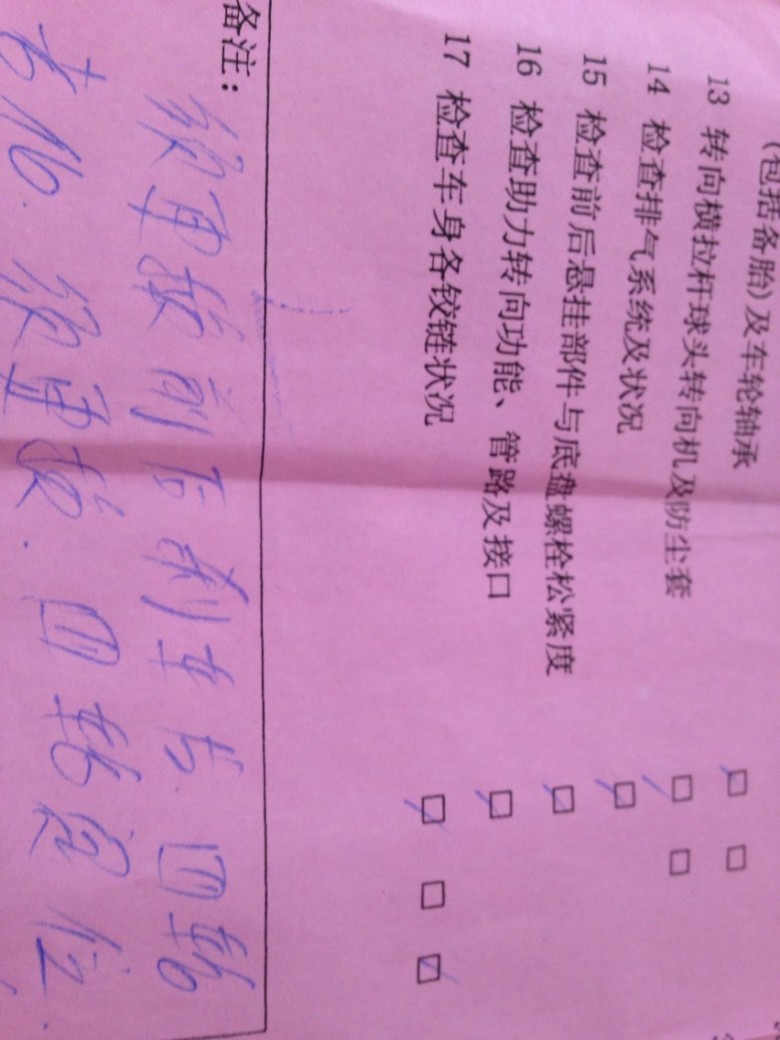 (包括备胎)及车轮轴承
13 转向横拉杆球头转向机及防尘套
14 检查排气系统及状况
15 检查前后悬挂部件与底盘螺栓松紧度
16 检查助力转向功能、管路及接口
17 检查车身各铰链状况
备注：
须更换前后刹车片.四轮
老化.须更换.四轮定位.